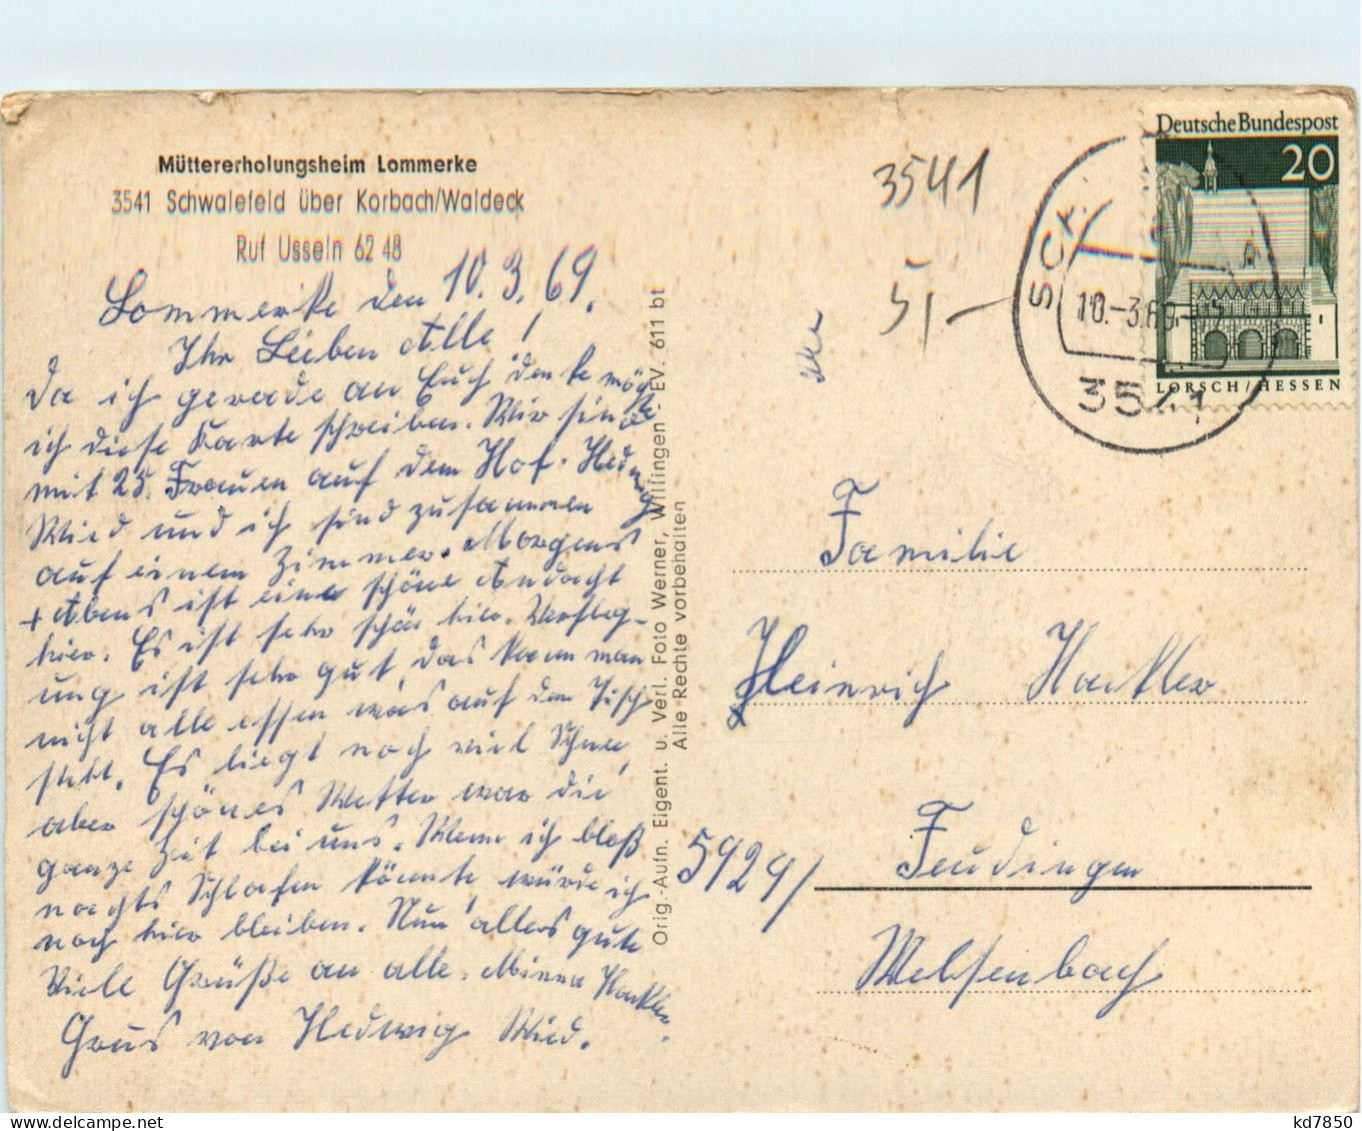 Müttererholungsheim Lommerke
3541 Schwalefeld über Korbach/Waldeck
Ruf Usseln 62 48
Lommerke den 10. 3. 69.
Ihr Lieben Alle!
Da ich gerade an Euch denke möchte
ich diese Karte schreiben. Wir sind
mit 25. Frauen auf dem Hof. Hedwig
Wied und ich sind zusammen
auf einem Zimmer. Morgens
+ Abens ist eine schöne Andacht
hier. Es ist sehr schön hier. Verfleg-
ung ist sehr gut, das kann man
nicht alle essen was auf den Tisch
steht. Es liegt noch viel Schnee,
aber schönes Wetter war die
ganze Zeit bei uns. Wenn ich bloß
nachts Schlafen könnte, würde ich
noch hier bleiben. Nun alles gute
Viele Grüße an alle. Minna Hackler.
Grus von Hedwig Wied.
Orig.-Aufn. Eigent. u. Verl. Foto Werner, Willingen - EV. 611 bt
Alle Rechte vorbehalten
3541
5,-
Deutsche Bundespost
20
LORSCH/HESSEN
10.-3.69.-
3541
Familie
Heinrich Hackler
5929/ Feudingen
Welsenbach
kd7850